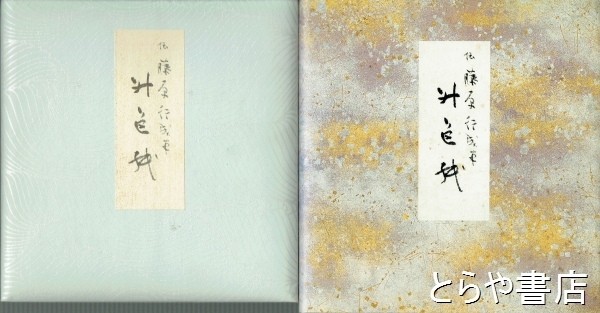 伝 藤原行成筆
升色紙
伝 藤原行成筆
升色紙
とらや書店